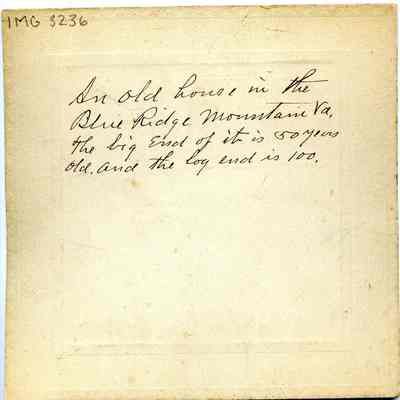 IMG 3236
An old house in the
Blue Ridge Mountain Va.
The big End of it is 50 years
old. and the log end is 100.